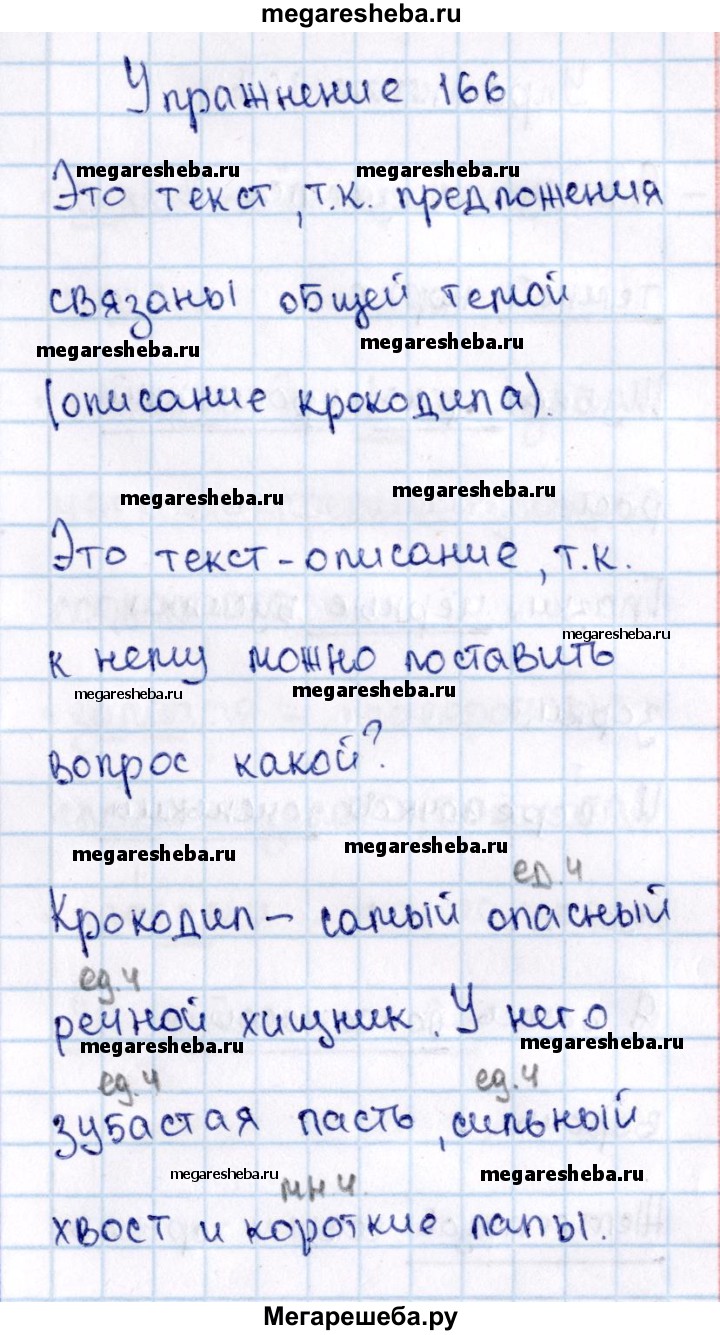 megaresheba.ru
Упражнение 166
megaresheba.ru megaresheba.ru
Это текст, т.к. предложения
связаны общей темой
megaresheba.ru megaresheba.ru
(описание крокодила).
megaresheba.ru megaresheba.ru
Это текст-описание, т.к.
megaresheba.ru
к нему можно поставить
megaresheba.ru megaresheba.ru
вопрос какой?
megaresheba.ru megaresheba.ru
ед.ч
Крокодил – самый опасный
ед.ч
речной хищник. У него
megaresheba.ru megaresheba.ru
ед.ч ед.ч
зубастая пасть, сильный
megaresheba.ru megaresheba.ru
мн.ч.
хвост и короткие лапы.
Мегарешеба.ру